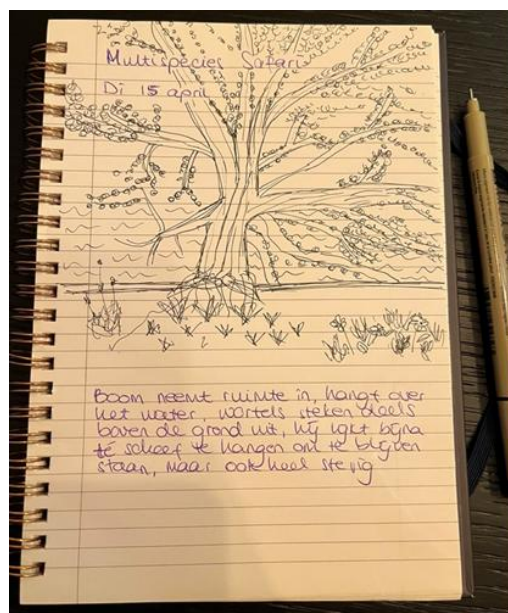 Multispecies Safari
Di 15 april
Boom neemt ruimte in, hangt over
het water, wortels steken deels
boven de grond uit, hij lijkt bijna
te scheef te hangen om te blijven
staan, maar ook heel stevig